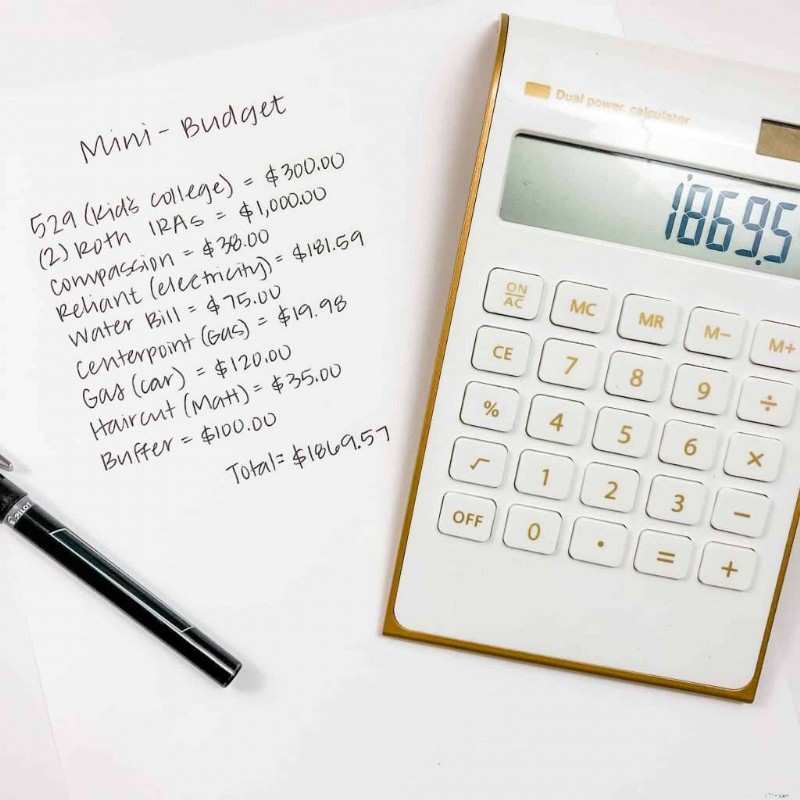 Mini-Budget
529 (Kid's College) = $300.00
(2) Roth IRAs = $1,000.00
Compassion = $38.00
Reliant (electricity) = $181.59
Water Bill = $75.00
Centerpoint (Gas) = $19.98
Gas (car) = $120.00
Haircut (Matt) = $35.00
Buffer = $100.00
Total = $1869.57
Dual power calculator
1'869.5
ON AC MC MR M− M+
CE 7 8 9 ÷
% 4 5 6 ×
√ 1 2 3 −
OFF 0 . = +
PILOT